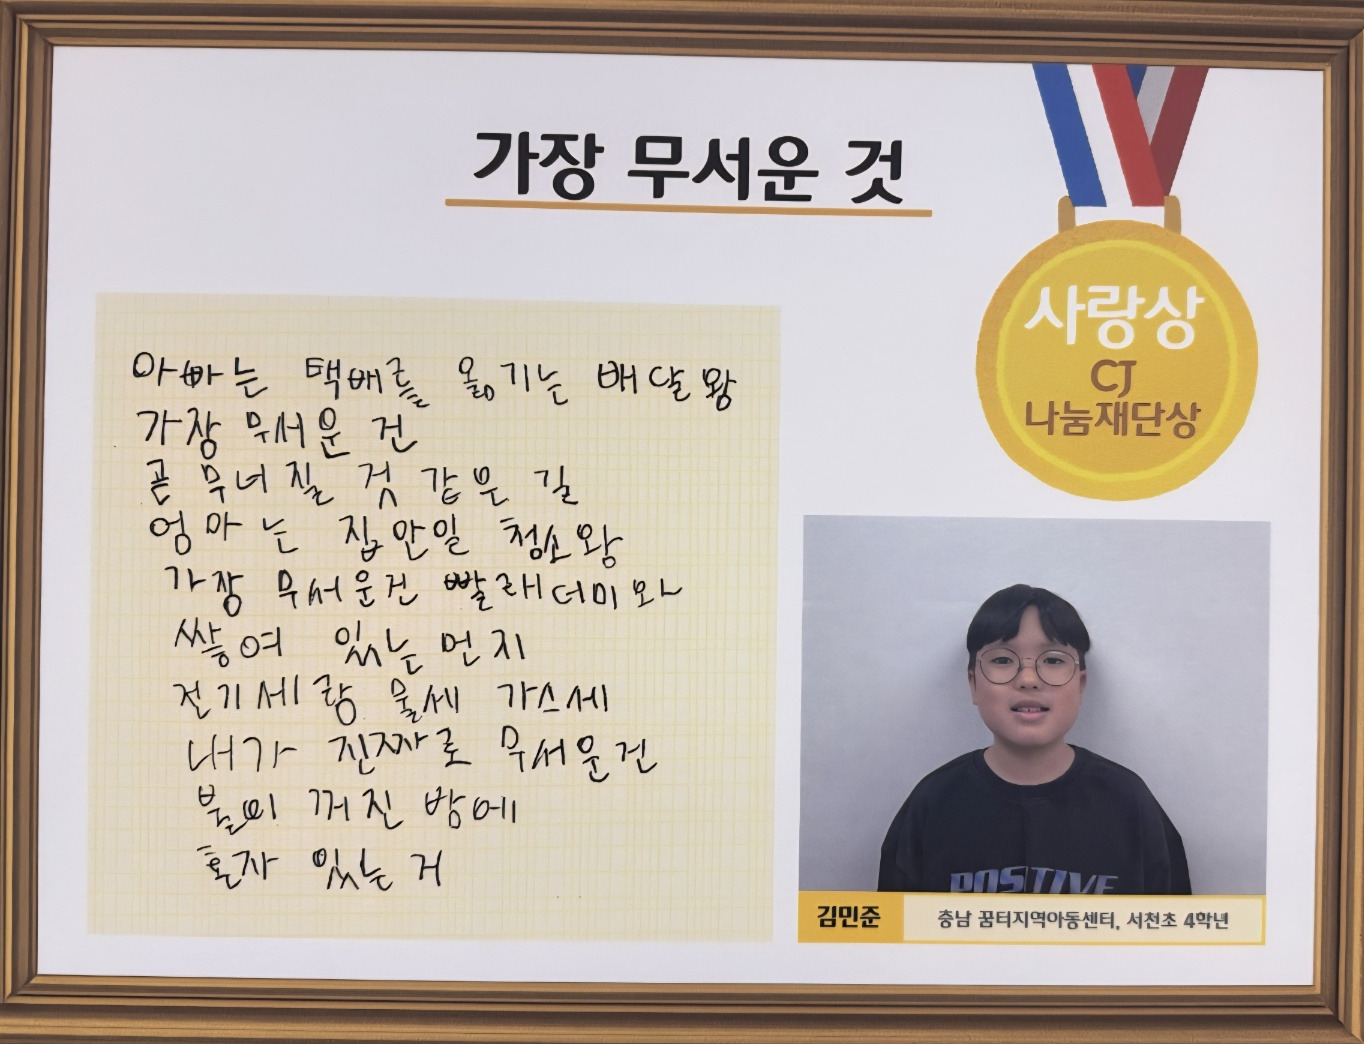 가장 무서운 것
사랑상
CJ
나눔재단상
아빠는 택배를 옮기는 배달왕
가장 무서운 건
곧 무너질 것 같은 길
엄마는 집안일 청소왕
가장 무서운건 빨래더미와
쌓여 있는 먼지
전기세랑 물세 가스세
내가 진짜로 무서운건
불이 꺼진 방에
혼자 있는 거
POSITIVE
김민준
충남 꿈터지역아동센터, 서천초 4학년